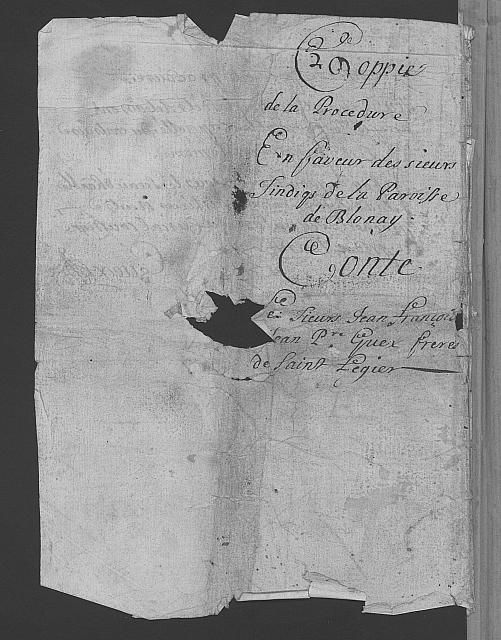 Coppie
de la Procedure
En faveur des sieurs
Sindiqs de la Paroisse
de Blonay.
Conte
Les Sieurs Jean François
Jean Pre Guex freres
de Saint Legier